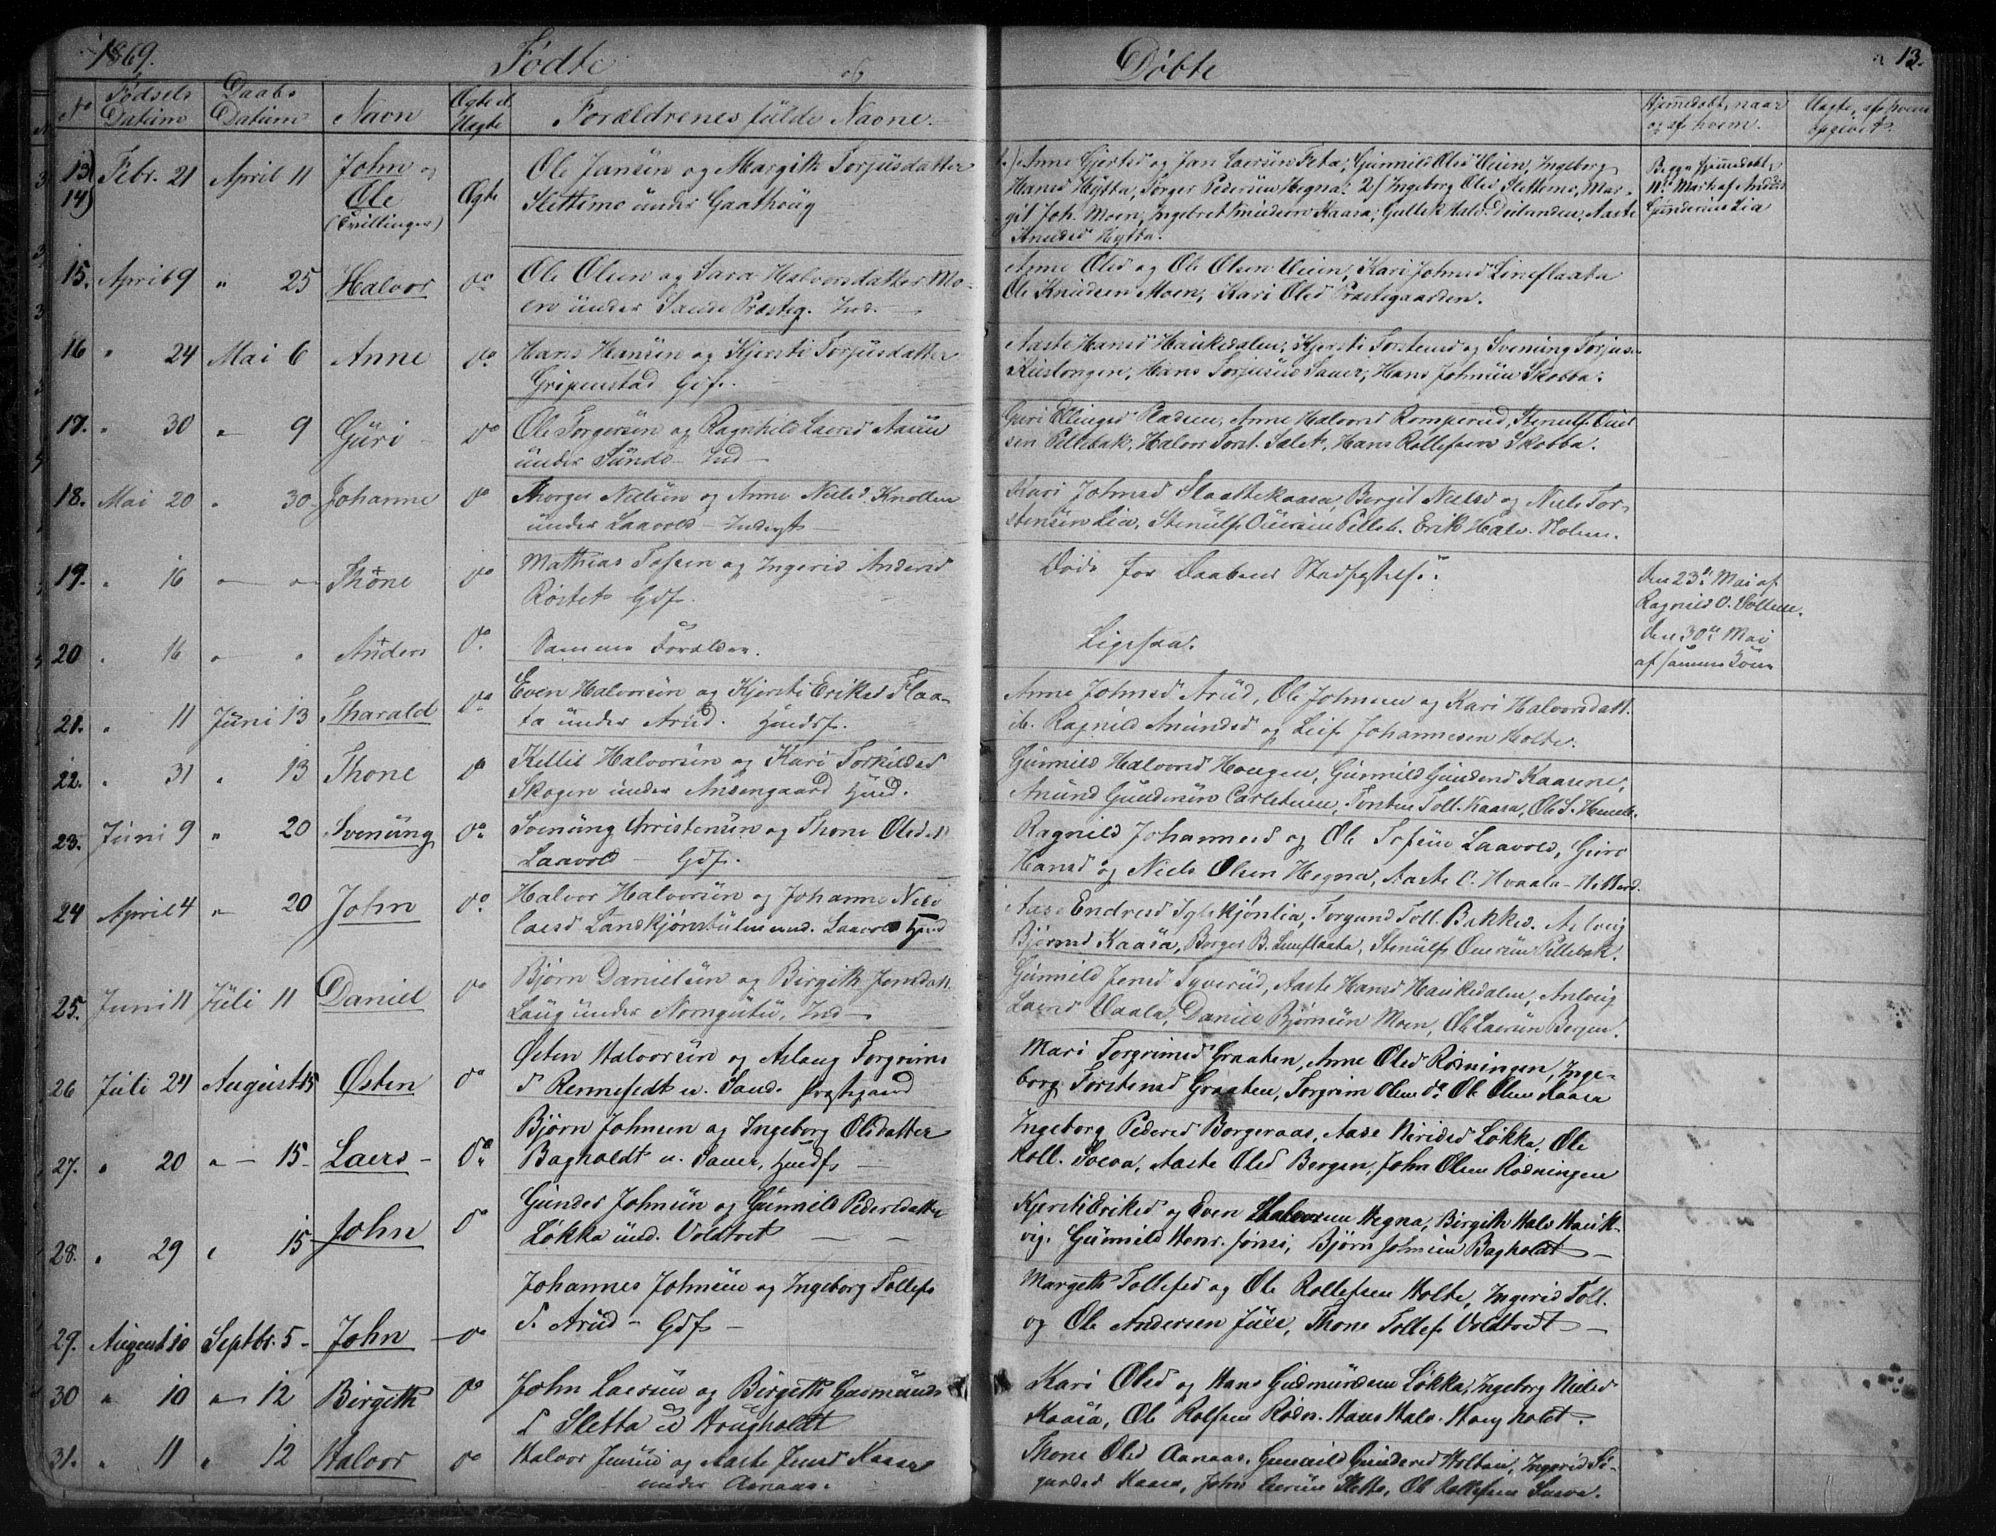 1869.
Fødte
og
Døbte
13.
No
Fødsels Datum
Daabs Datum
Navn
Ægte el. Uægte
Forældrenes fulde Navne.
Hjemmedøbt, naar og af hvem.
Uægte, af hvem opgivet.
13) Febr. 21 April 11 John og
14) Ole
(Tvillinger)
Ægte
Ole Jansen og Margith Torjusdatter
Slettemo under Gaathoug
1) Anne Gjertsd og Jan Laersen Teta, Gunnild Olsd Veien, Ingeborg
Hansd Hytta, Torger Pedersen Hegna. 2) Ingeborg Olsd Slettemo, Mar-
git Joh. Moen, Ingebret Knudsen Kaasa, Gullek Halv. Deilanden, Aaste
Knudsd Hytta.
Begge hjemmedøbt
11te Marts af Anders
Gundersen Lia
15. April 9 " 25 Halvor do
Ole Olsen og Sara Halvorsdatter Mo-
en under Saude Præsteg. Ind.
Anne Olsd og Ole Olsen Veien, Kari Johnsd Lineflaata
Ole Knudsen Moen, Kari Olsd Præstegaarden.
16 " 24 Mai 6 Anne do
Hans Hansen og Kjersti Torjusdatter
Gripenstad Gdf.
Aaste Hansd Haukedalen, Kjersti Torstensd og Svenung Torjus.
Kiislongen, Hans Torjusen Sauer, Hans Johnsen Skobba.
17. " 30 " 9 Guri do
Ole Torgersen og Ragnhild Laersd Aasen
under Sunde Ind
Guri Ellingsd Pladsen, Anne Halvorsd Romperud, Stenulf Ouver-
sen Pillebak, Halvor Torst. Salet, Hans Rollefsen Skobba.
18. Mai 20 " 30 Johanne do
Thorger Nielsen og Anne Nielsd Knollen
under Laavold Inderst
Kari Johnsd Slaattekaasa, Bergit Nielsd og Niels Tor-
stensen Lia, Stenulf Ouversen Pilleb. Erik Halv. Holm.
19. " 16 Thone do
Mathias Tofsen og Ingerid Andersd
Rostet Gdf.
Døde før Daabens Stadfæstelse.
den 23de Mai af
Ragnild O. Vollene.
20 " 16 " " Anders do
Samme Forældre.
Ligesaa.
den 30te Mai
af samme Kone
21. " 11 Juni 13 Tharald do
Even Halvorsen og Kjersti Eriksd Flaa-
ta under Arud. Huusf.
Anne Johnsd Arud, Ole Johnsen og Kari Halvorsdatt.
ib. Ragnild Amundsd og Leif Johannesen Holte.
22. " 31 " 13 Thone do
Kettil Halvorsen og Kari Torkildsd
Skogen under Aasengaard Huusf.
Gunnild Halvorsd Hougen, Gunnild Gundersd Kaasene,
Amund Gundersen Carlstuen, Torsten Toll. Kaasa, Ole S. Hemelt.
23. Juni 9 " 20 Svenung do
Svenung Christensen og Thone Olsdatt
Laavold Gdf.
Ragnild Johannesd og Ole Tofsen Laavold, Guro
Hansd og Niels Olsen Hegna, Aaste C. Hvaala
24 April 4 " 20 John do
Halvor Halvorsen og Johanne Nico
laesd Landskjørstulen und. Laavold Huusf
Aase Endresd Iglekjønlia, Torgund Toll. Bakke, Aslaug
Bjørnsd Kaasa, Borger B. Lineflaata, Stenulf Ouversen Pillebak.
25. Juni 11 Juli 11 Daniel do
Bjørn Danielsen og Birgith Jensdatt
Laug under Nomgutu, Ind
Gunnild Jensd Tyverud, Aaste Hansd Haukedalen, Anlaug
Laersd Vaala, Daniel Bjørnsen Moen, Ole Laersen Bergen.
26 Juli 24 August 15 Østen do
Østen Halvorsen og Aslaug Torgrims
d Rennesedt u. Saud. Præstegaard
Mari Torgrimsd Graaten, Anne Olsd Rodningen, Inge-
borg Torstensd Graaten, Torgrim Olsen do Ole Olsen Kaasa
27. " 20 " 15 Laers do
Bjørn Johnsen og Ingeborg Olsdatter
Bagholdt u. Sauer, Huusf
Ingeborg Pedersd Borgeraas, Aase Niridsd Løkka, Ole
Roll. Sveva, Aaste Olsd Bergen, John Olsen Rodningen
28. " 29 " 15 John do
Gunder Johnsen og Gunnild Pedersdatter
Løkka und. Voldtvet
Kjersti Eriksd og Even Halvorsen Hegna, Birgith Halv Hauk-
vig. Gunnild Henr. Jønsi, Bjørn Johnsen Bagholdt
29. August 10 Septbr. 5 John do
Johannes Johnsen og Ingeborg Tollefs
d. Arud Gdf
Margeth Tollefsd og Ole Rollefsen Holte, Ingerid Toll.
og Ole Andersen Juve, Thone Tollefs Voldtvedt
30 " 10 " 12 Birgith do
John Laersen og Birgith Gudmunds
d Sletta u Hougholdt
Kari Olsd og Hans Gudmundsen Løkka, Ingeborg Nielsd
Kaasa, Ole Rolfsen Rodn. Hans Halv. Hougholdt.
31. " 11 " 12 Halvor do
Halvor Jensen og Aaste Jensd Kaasa
under Aanaas.
Thone Olsd Aanaas, Gunnild Gundersd Holtan, Ingerid Si-
gurdsd Kaasa, John Laersen Sletta, Ole Rollefsen Sveva.